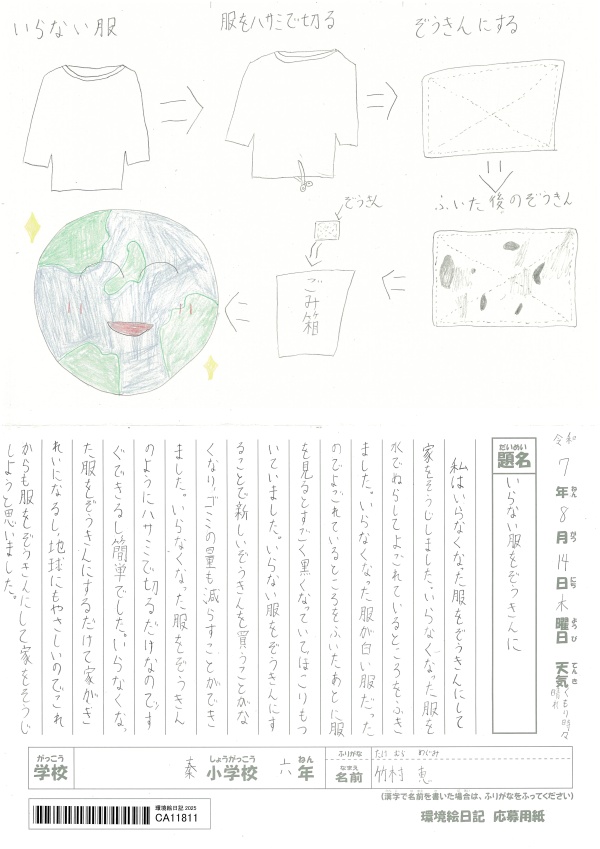 いらない服
服をハサミで切る
ぞうきんにする
ふいた後のぞうきん
ぞうきん
ごみ箱
令和
7年8月14日木曜日 天気くもり時々晴れ
ねん がつ にち ようび てんき
だいめい
題名
いらない服をぞうきんに
私はいらなくなった服をぞうきんにして
家をそうじしました。いらなくなった服を
水でぬらしてよごれているところをふき
ました。いらなくなった服が白い服だった
のでよごれているところをふいたあとに服
を見るとすごく黒くなっていてほこりもつ
いていました。いらない服をぞうきんにす
ることで新しいぞうきんを買うことがな
くなり、ゴミの量も減らすことができ
ました。いらなくなった服をぞうきん
のようにハサミで切るだけなのですぐ
ぐできるし簡単でした。いらなくなっ
た服をぞうきんにするだけで家がき
れいになるし、地球にもやさしいのでこれ
からも服をぞうきんにして家をそうじ
しようと思いました。
がっこう
学校
秦
しょうがっこう
小学校
六
ねん
年
ふりがな
たけむら めぐみ
なまえ
名前
竹村 恵
(漢字で名前を書いた場合は、ふりがなをふってください)
環境絵日記 2025
CA11811
環境絵日記 応募用紙